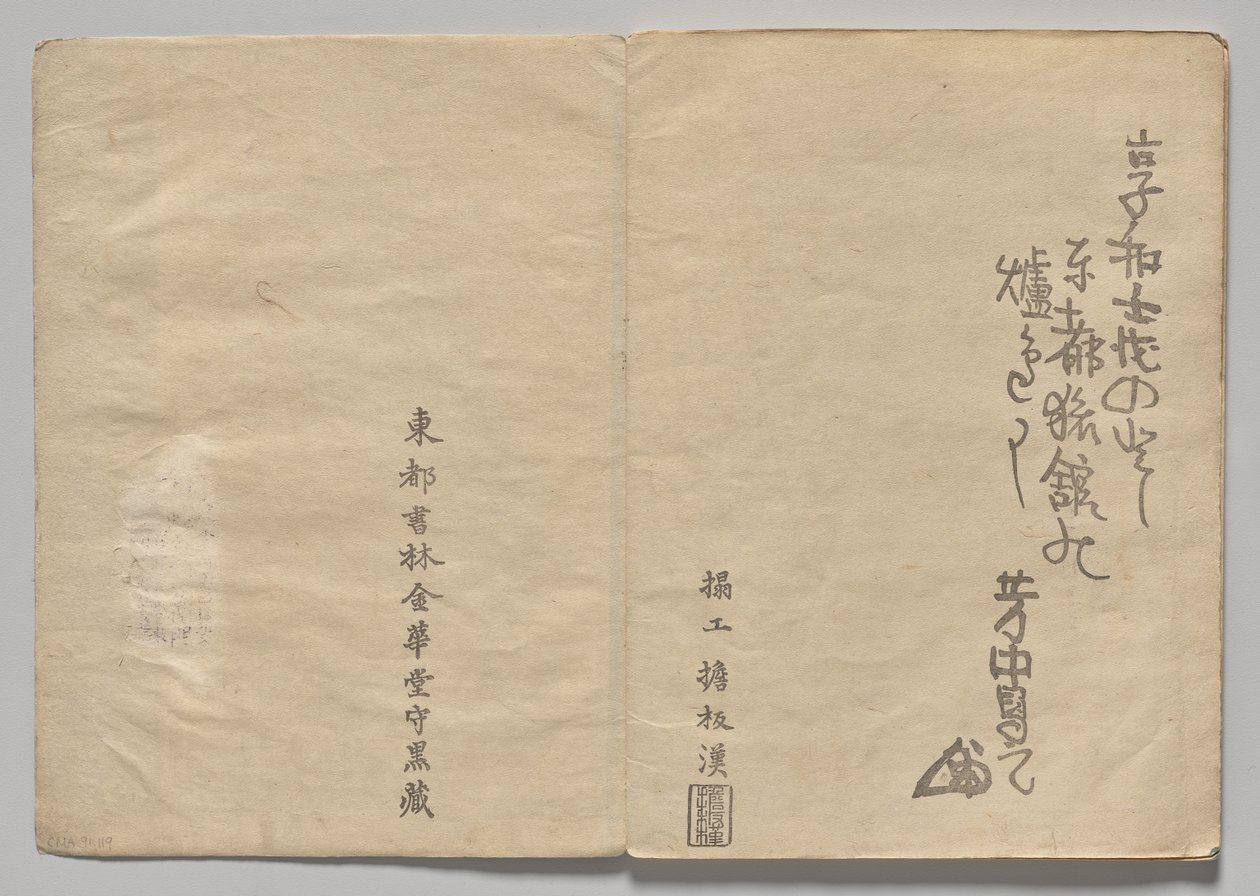 享和壬戌のとし
東都旅舘
爐
芳中画之
搨工 擔板漢
東都書林金華堂守黒藏
CMA 91.119